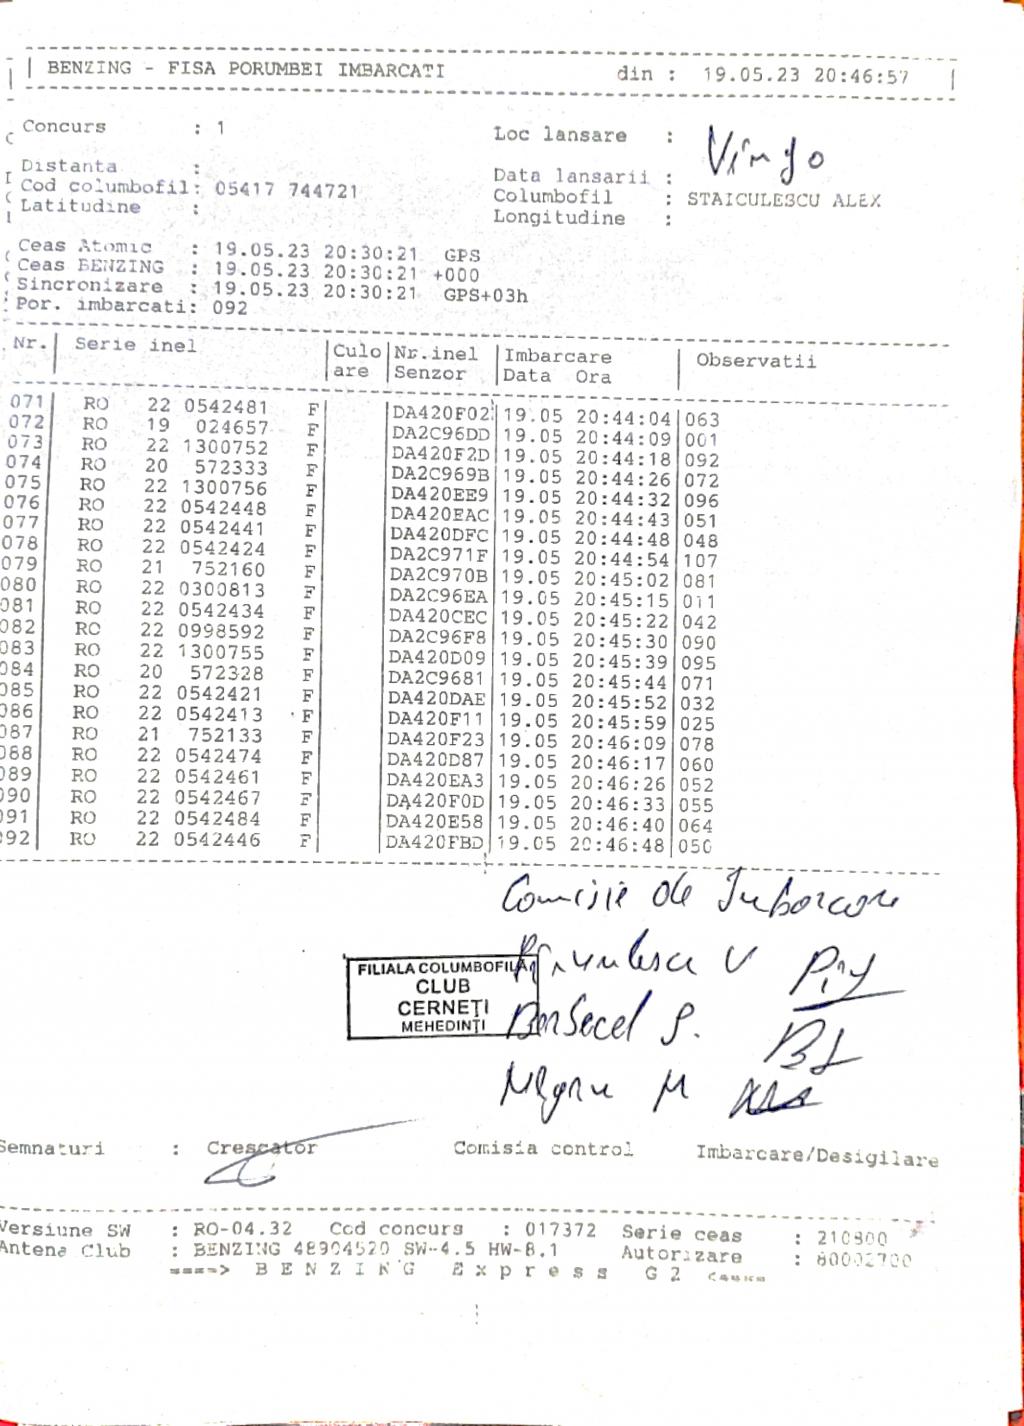 BENZING - FISA PORUMBEI IMBARCATI din : 19.05.23 20:46:57
Concurs : 1 Loc lansare :
Distanta : Data lansarii :
Cod columbofil: 05417 744721 Columbofil : STAICULESCU ALEX
Latitudine : Longitudine :
Ceas Atomic : 19.05.23 20:30:21 GPS
Ceas BENZING : 19.05.23 20:30:21 +000
Sincronizare : 19.05.23 20:30:21 GPS+03h
Por. imbarcati: 092
Nr. Serie inel Culo Nr.inel Imbarcare Observatii
are Senzor Data Ora
071 RO 22 0542481 F DA420F02 19.05 20:44:04 063
072 RO 19 024657 F DA2C96DD 19.05 20:44:09 001
073 RO 22 1300752 F DA420F2D 19.05 20:44:18 092
074 RO 20 572333 F DA2C969B 19.05 20:44:26 072
075 RO 22 1300756 F DA420EE9 19.05 20:44:32 096
076 RO 22 0542448 F DA420EAC 19.05 20:44:43 051
077 RO 22 0542441 F DA420DFC 19.05 20:44:48 048
078 RO 22 0542424 F DA2C971F 19.05 20:44:54 107
079 RO 21 752160 F DA2C970B 19.05 20:45:02 081
080 RO 22 0300813 F DA2C96EA 19.05 20:45:15 011
081 RO 22 0542434 F DA420CEC 19.05 20:45:22 042
082 RO 22 0998592 F DA2C96F8 19.05 20:45:30 090
083 RO 22 1300755 F DA420D09 19.05 20:45:39 095
084 RO 20 572328 F DA2C9681 19.05 20:45:44 071
085 RO 22 0542421 F DA420DAE 19.05 20:45:52 032
086 RO 22 0542413 F DA420F11 19.05 20:45:59 025
087 RO 21 752133 F DA420F23 19.05 20:46:09 078
088 RO 22 0542474 F DA420D87 19.05 20:46:17 060
089 RO 22 0542461 F DA420EA3 19.05 20:46:26 052
090 RO 22 0542467 F DA420F0D 19.05 20:46:33 055
091 RO 22 0542484 F DA420E58 19.05 20:46:40 064
092 RO 22 0542446 F DA420FBD 19.05 20:46:48 050
Comisie de Imbarcare
FILIALA COLUMBOFILA
CLUB
CERNEȚI
MEHEDINȚI
Semnaturi : Crescator Comisia control Imbarcare/Desigilare
Versiune SW : RO-04.32 Cod concurs : 017372 Serie ceas : 210800
Antena Club : BENZING 48904520 SW-4.5 HW-8.1 Autorizare : 80002700
====> B E N Z I N G E x p r e s s G 2 <====